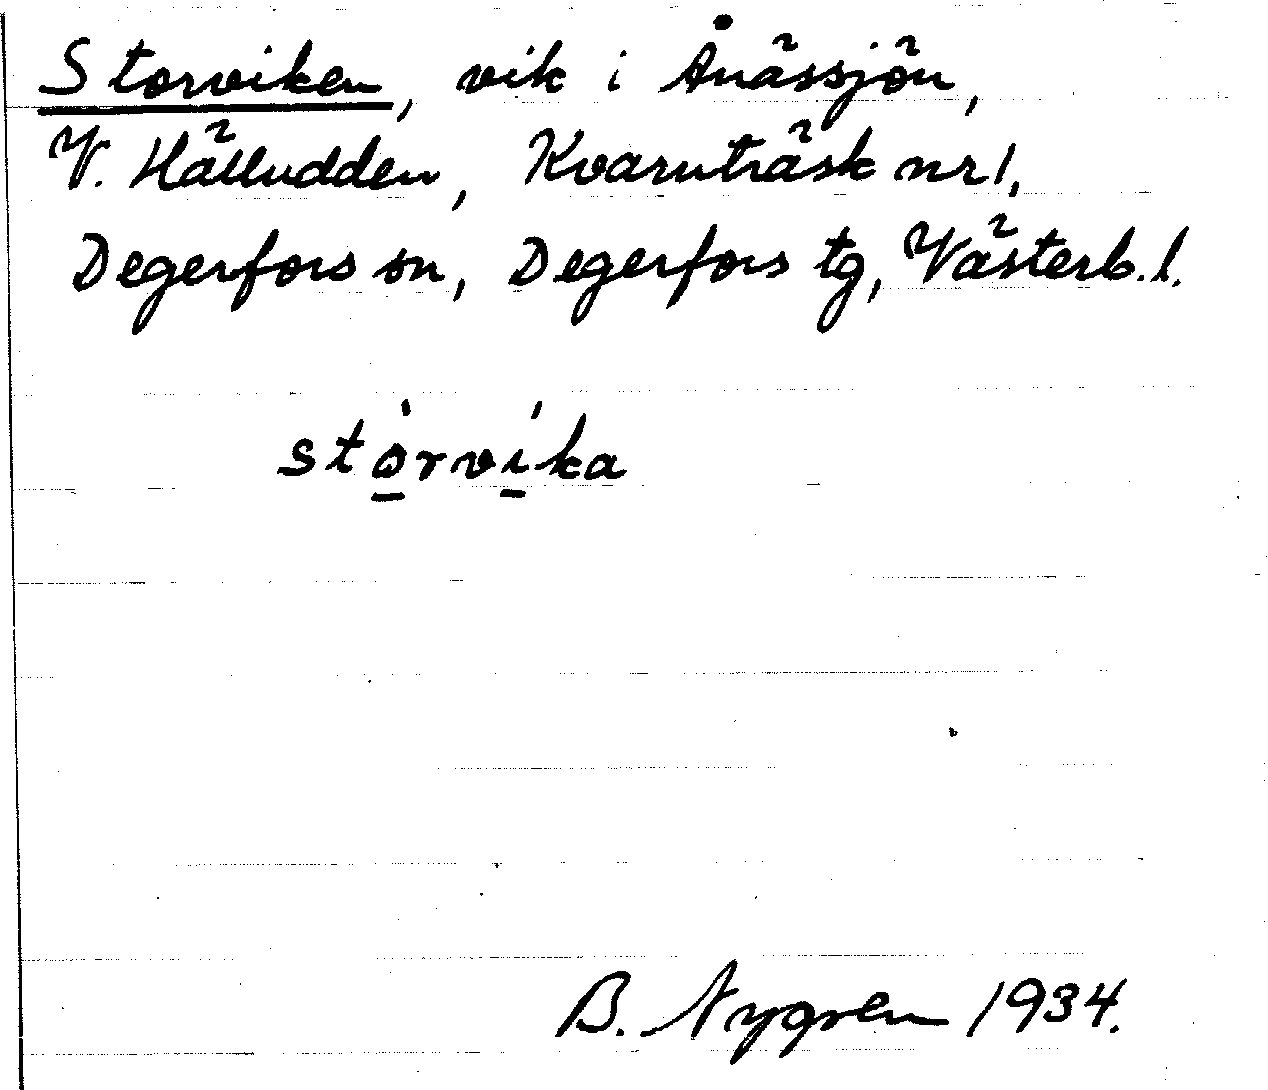 Storviken, vik i Ånässjön,
V. Hälludden, Kvarnträsk nr 1,
Degerfors sn, Degerfors tg, Västerb. l.
stòrvíka
B. Nygren 1934.